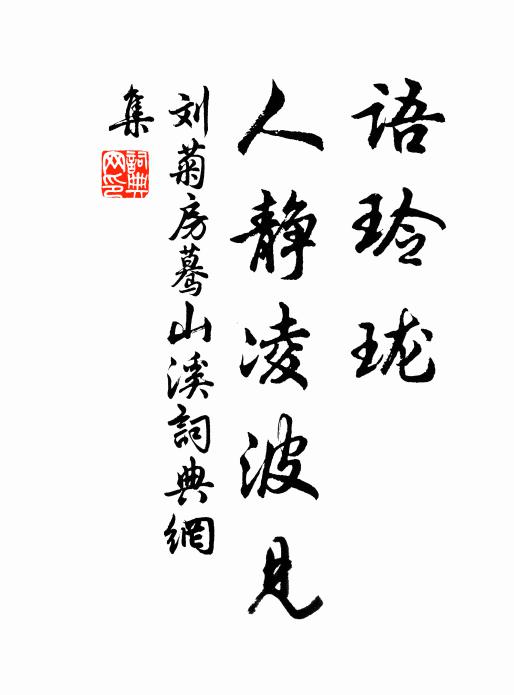 语玲珑
人静凌波见
刘菊房蓦山溪詞典網
集
詞典网印